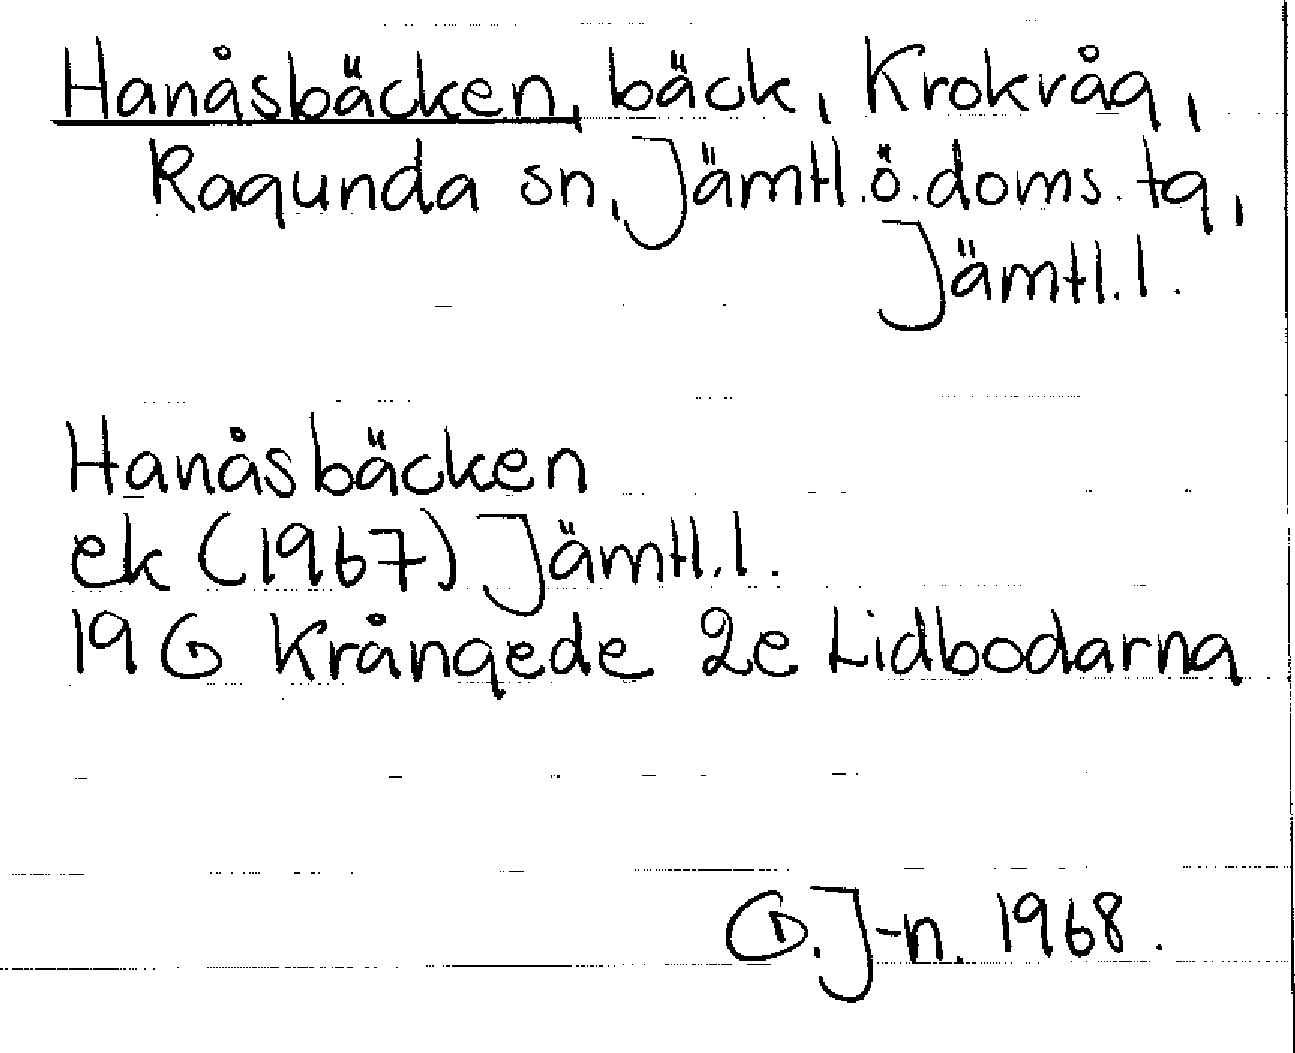 Hanåsbäcken, bäck, Krokvåg,
Ragunda sn, Jämtl.ö.doms.tg,
Jämtl.l.
Hanåsbäcken
ek (1967) Jämtl.l.
19 G Krångede 2e Lidbodarna
G.J-n. 1968.